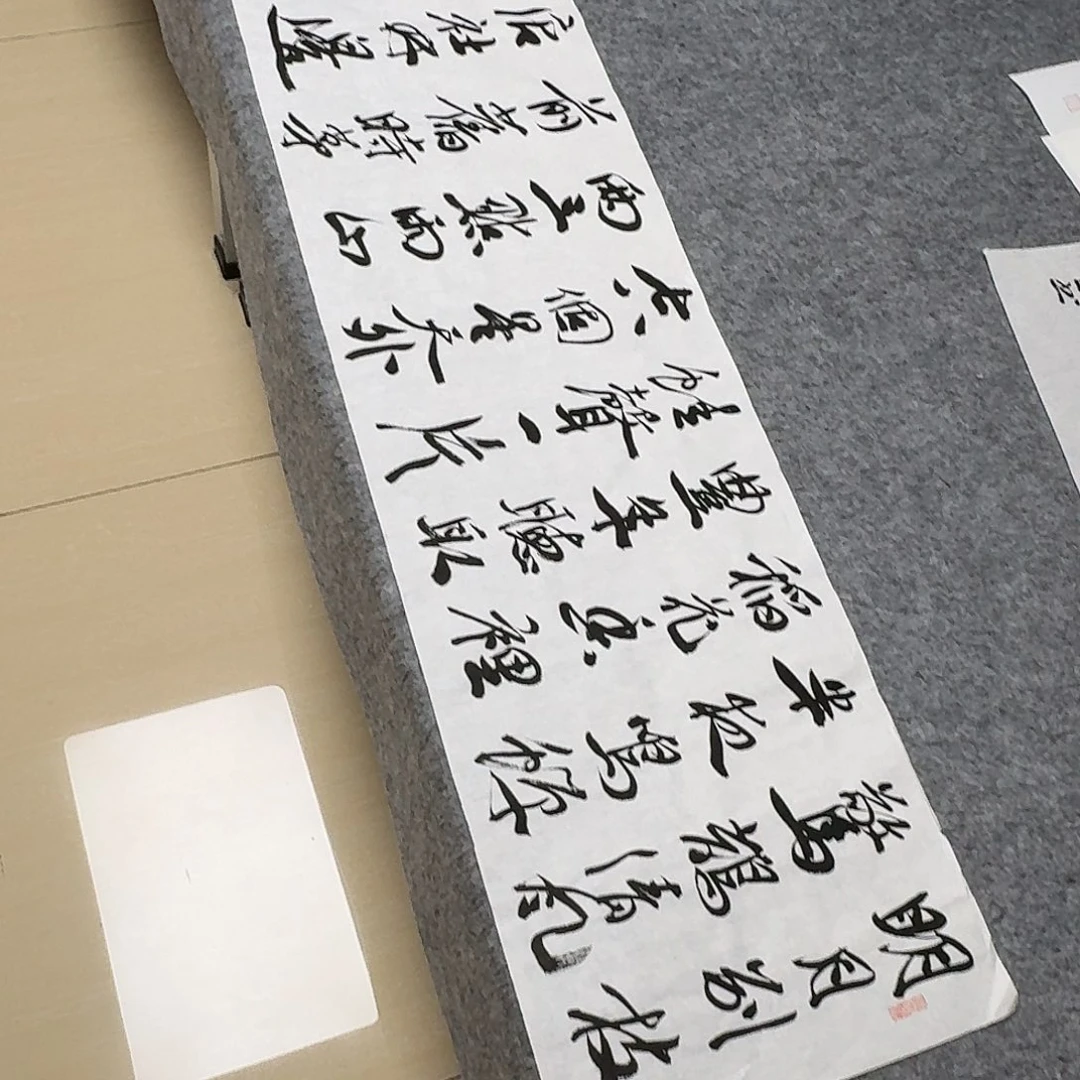 明月別枝
驚鵲清風
半夜鳴蟬
稻花香裡
豐年聽取
蛙聲一片
七八個星天外
兩三點雨山
前舊時茅
店社林邊